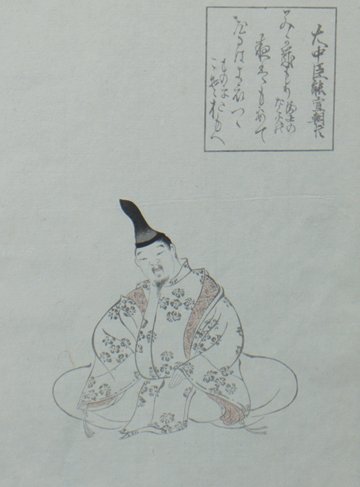 大中臣能宣朝臣
みかきもり衛士の
たく火の
夜はもえて
ひるはきえつゝ
ものをこ
そおもへ